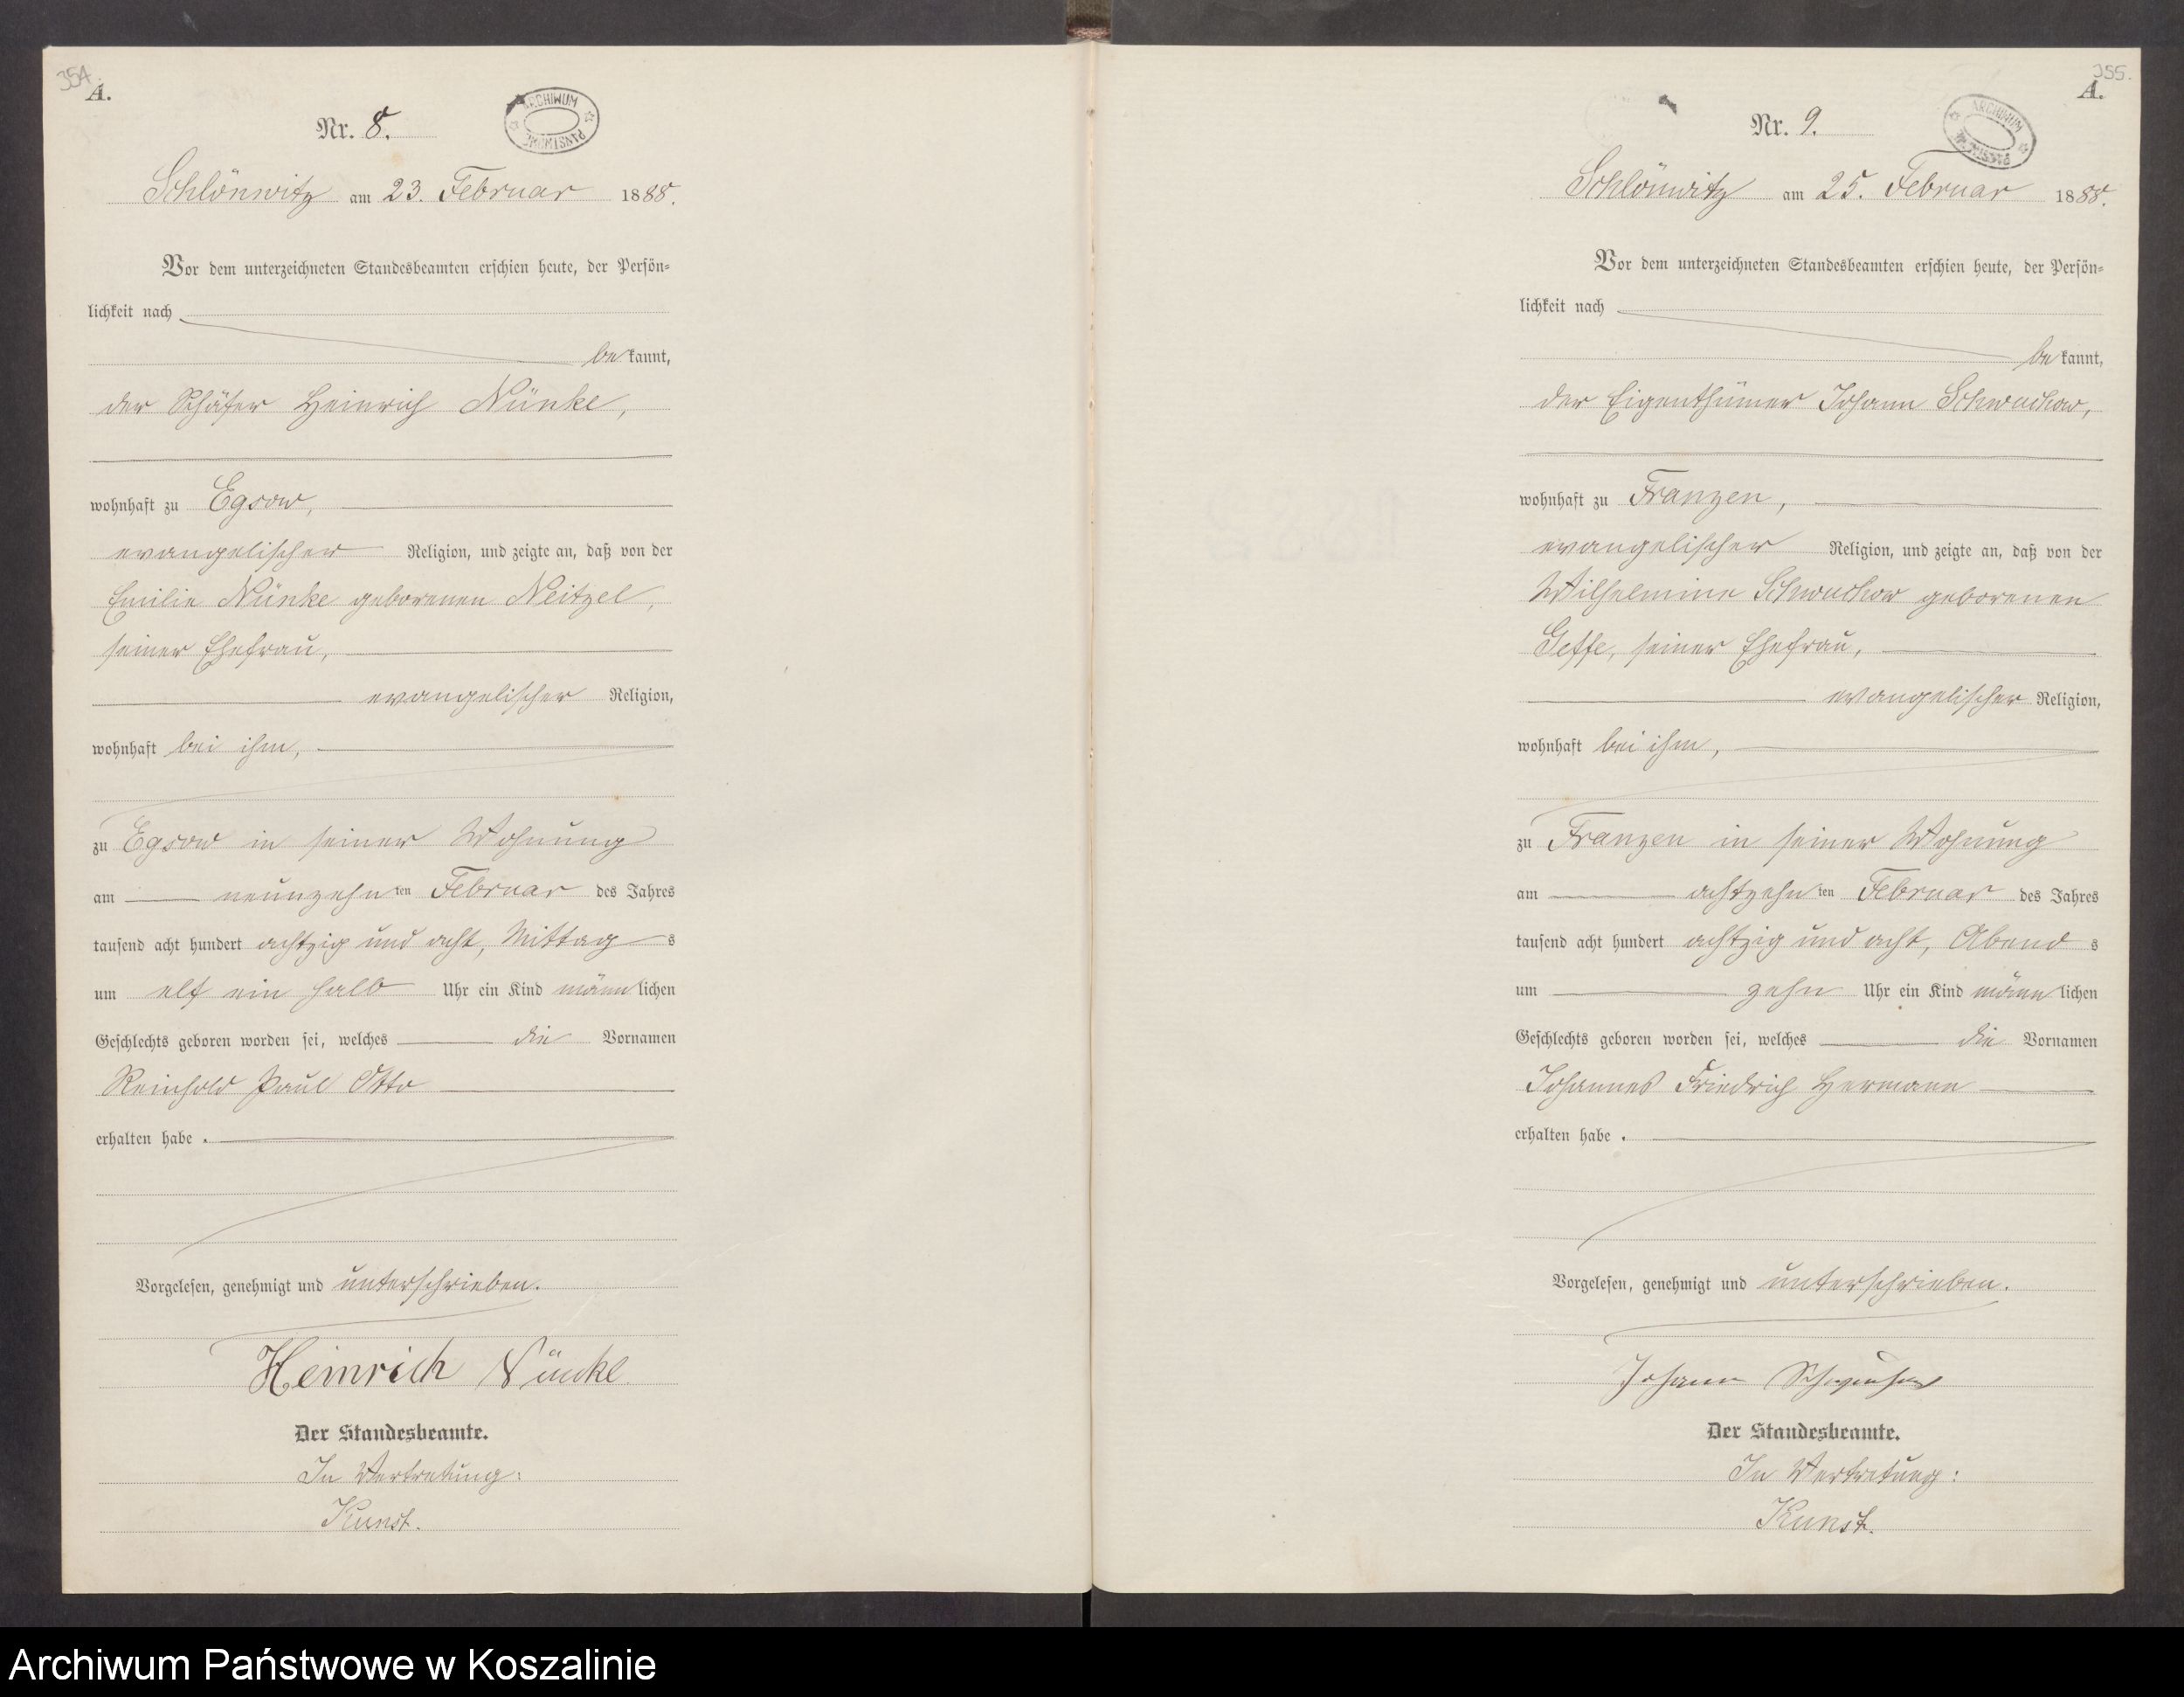 354.
A.
ARCHIWUM PAŃSTWOWE
Nr. 8.
Schlönwitz am 23. Februar 1888.
Vor dem unterzeichneten Standesbeamten erschien heute, der Persön=
lichkeit nach
be kannt,
der Schäfer Heinrich Nünke,
wohnhaft zu Egsow,
evangelischer Religion, und zeigte an, daß von der
Emilie Nünke geborenen Neitzel,
seiner Ehefrau,
evangelischer Religion,
wohnhaft bei ihm,
zu Egsow in seiner Wohnung
am neunzehn ten Februar des Jahres
tausend acht hundert achtzig und acht, Mittag s
um elf ein halb Uhr ein Kind männ lichen
Geschlechts geboren worden sei, welches die Vornamen
Reinhold Paul Otto
erhalten habe.
Vorgelesen, genehmigt und unterschrieben.
Heinrich Nünke
Der Standesbeamte.
In Vertretung:
Kunst.
355.
A.
ARCHIWUM PAŃSTWOWE
Nr. 9.
Schlönwitz am 25. Februar 1888.
Vor dem unterzeichneten Standesbeamten erschien heute, der Persön=
lichkeit nach
be kannt,
der Eigenthümer Johann Schwuchow,
wohnhaft zu Franzen,
evangelischer Religion, und zeigte an, daß von der
Wilhelmine Schwuchow geborenen
Geffe, seiner Ehefrau,
evangelischer Religion,
wohnhaft bei ihm,
zu Franzen in seiner Wohnung
am achtzehn ten Februar des Jahres
tausend acht hundert achtzig und acht, Abend s
um zehn Uhr ein Kind männ lichen
Geschlechts geboren worden sei, welches die Vornamen
Johannes Friedrich Hermann
erhalten habe.
Vorgelesen, genehmigt und unterschrieben.
Johann Schwuchow
Der Standesbeamte.
In Vertretung:
Kunst.
Archiwum Państwowe w Koszalinie